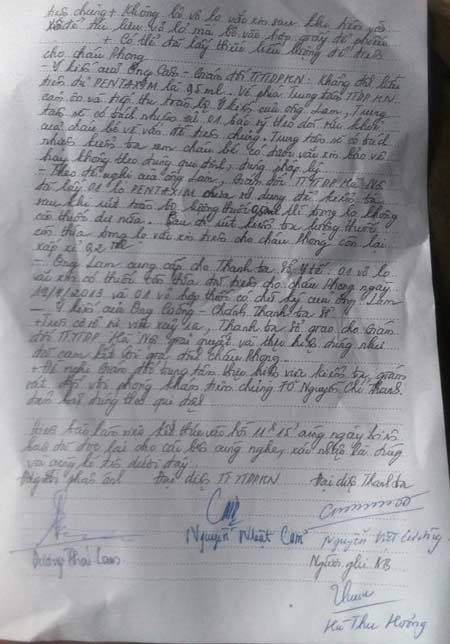 tiêm chủng + Không bỏ vỏ lọ vắc xin sau khi tiêm vào
để lưu vỏ lọ mà bỏ vào hộp giấy
+ Có thể đã lấy thiếu liều lượng để tiêm
cho cháu Phong
- Ý kiến của Ông Cảm - Giám đốc TTYTDPHN: Khẳng định liều
tiêm đủ PENTAXIM là 0,5ml. Về phía Trung tâm YTDP HN
cảm ơn và tiếp thu toàn bộ ý kiến của ông Lam, Trung
tâm sẽ có trách nhiệm cử 01 bác sỹ theo dõi sức khỏe
của cháu bé về vấn đề tiêm chủng. Trung tâm sẽ có trách
nhiệm kiểm tra xem cháu bé có được vắc xin bảo vệ
hay không theo đúng qui định, đúng pháp lý.
- Theo đề nghị của ông Lam, Giám đốc TTYTDP Hà Nội
đã lấy 01 lọ PENTAXIM chưa sử dụng để kiểm tra
sau khi rút toàn bộ lượng thuốc 0,5ml thì trong lọ không
còn thuốc dư nữa. Sau đó rút kiểm tra lượng thuốc
còn thừa trong lọ vắc xin tiêm cho cháu Phong còn lại
xấp xỉ 0,2 ml
- Ông Lam cung cấp cho Thanh tra Sở Y tế: 01 vỏ lọ
vắc xin có thuốc còn thừa đã tiêm cho cháu Phong ngày
/2013 và 01 vỏ hộp thuốc có chữ ký của ông Lam
- Ý kiến của Ông Cường - Chánh Thanh tra Sở
+ Trên cơ sở sự việc xảy ra, Thanh tra Sở giao cho Giám
đốc TTYTDP Hà Nội giải quyết và thực hiện đúng như
đã cam kết với gia đình cháu Phong.
+ Đề nghị Giám đốc trung tâm thực hiện việc kiểm tra, giám
sát đối với phòng khám tiêm chủng 70 Nguyễn Chí Thanh
đảm bảo đúng theo qui định
Buổi làm việc kết thúc vào hồi 11h15' cùng ngày biên
bản đã đọc lại cho các bên cùng nghe, xác nhận là đúng
và cùng ký tên dưới đây.
Người phản ánh Đại diện TTYTDPHN Đại diện Thanh tra
Dương Phái Lam Nguyễn Nhật Cảm Nguyễn Việt Cường
Người ghi BB
Hà Thu Hương